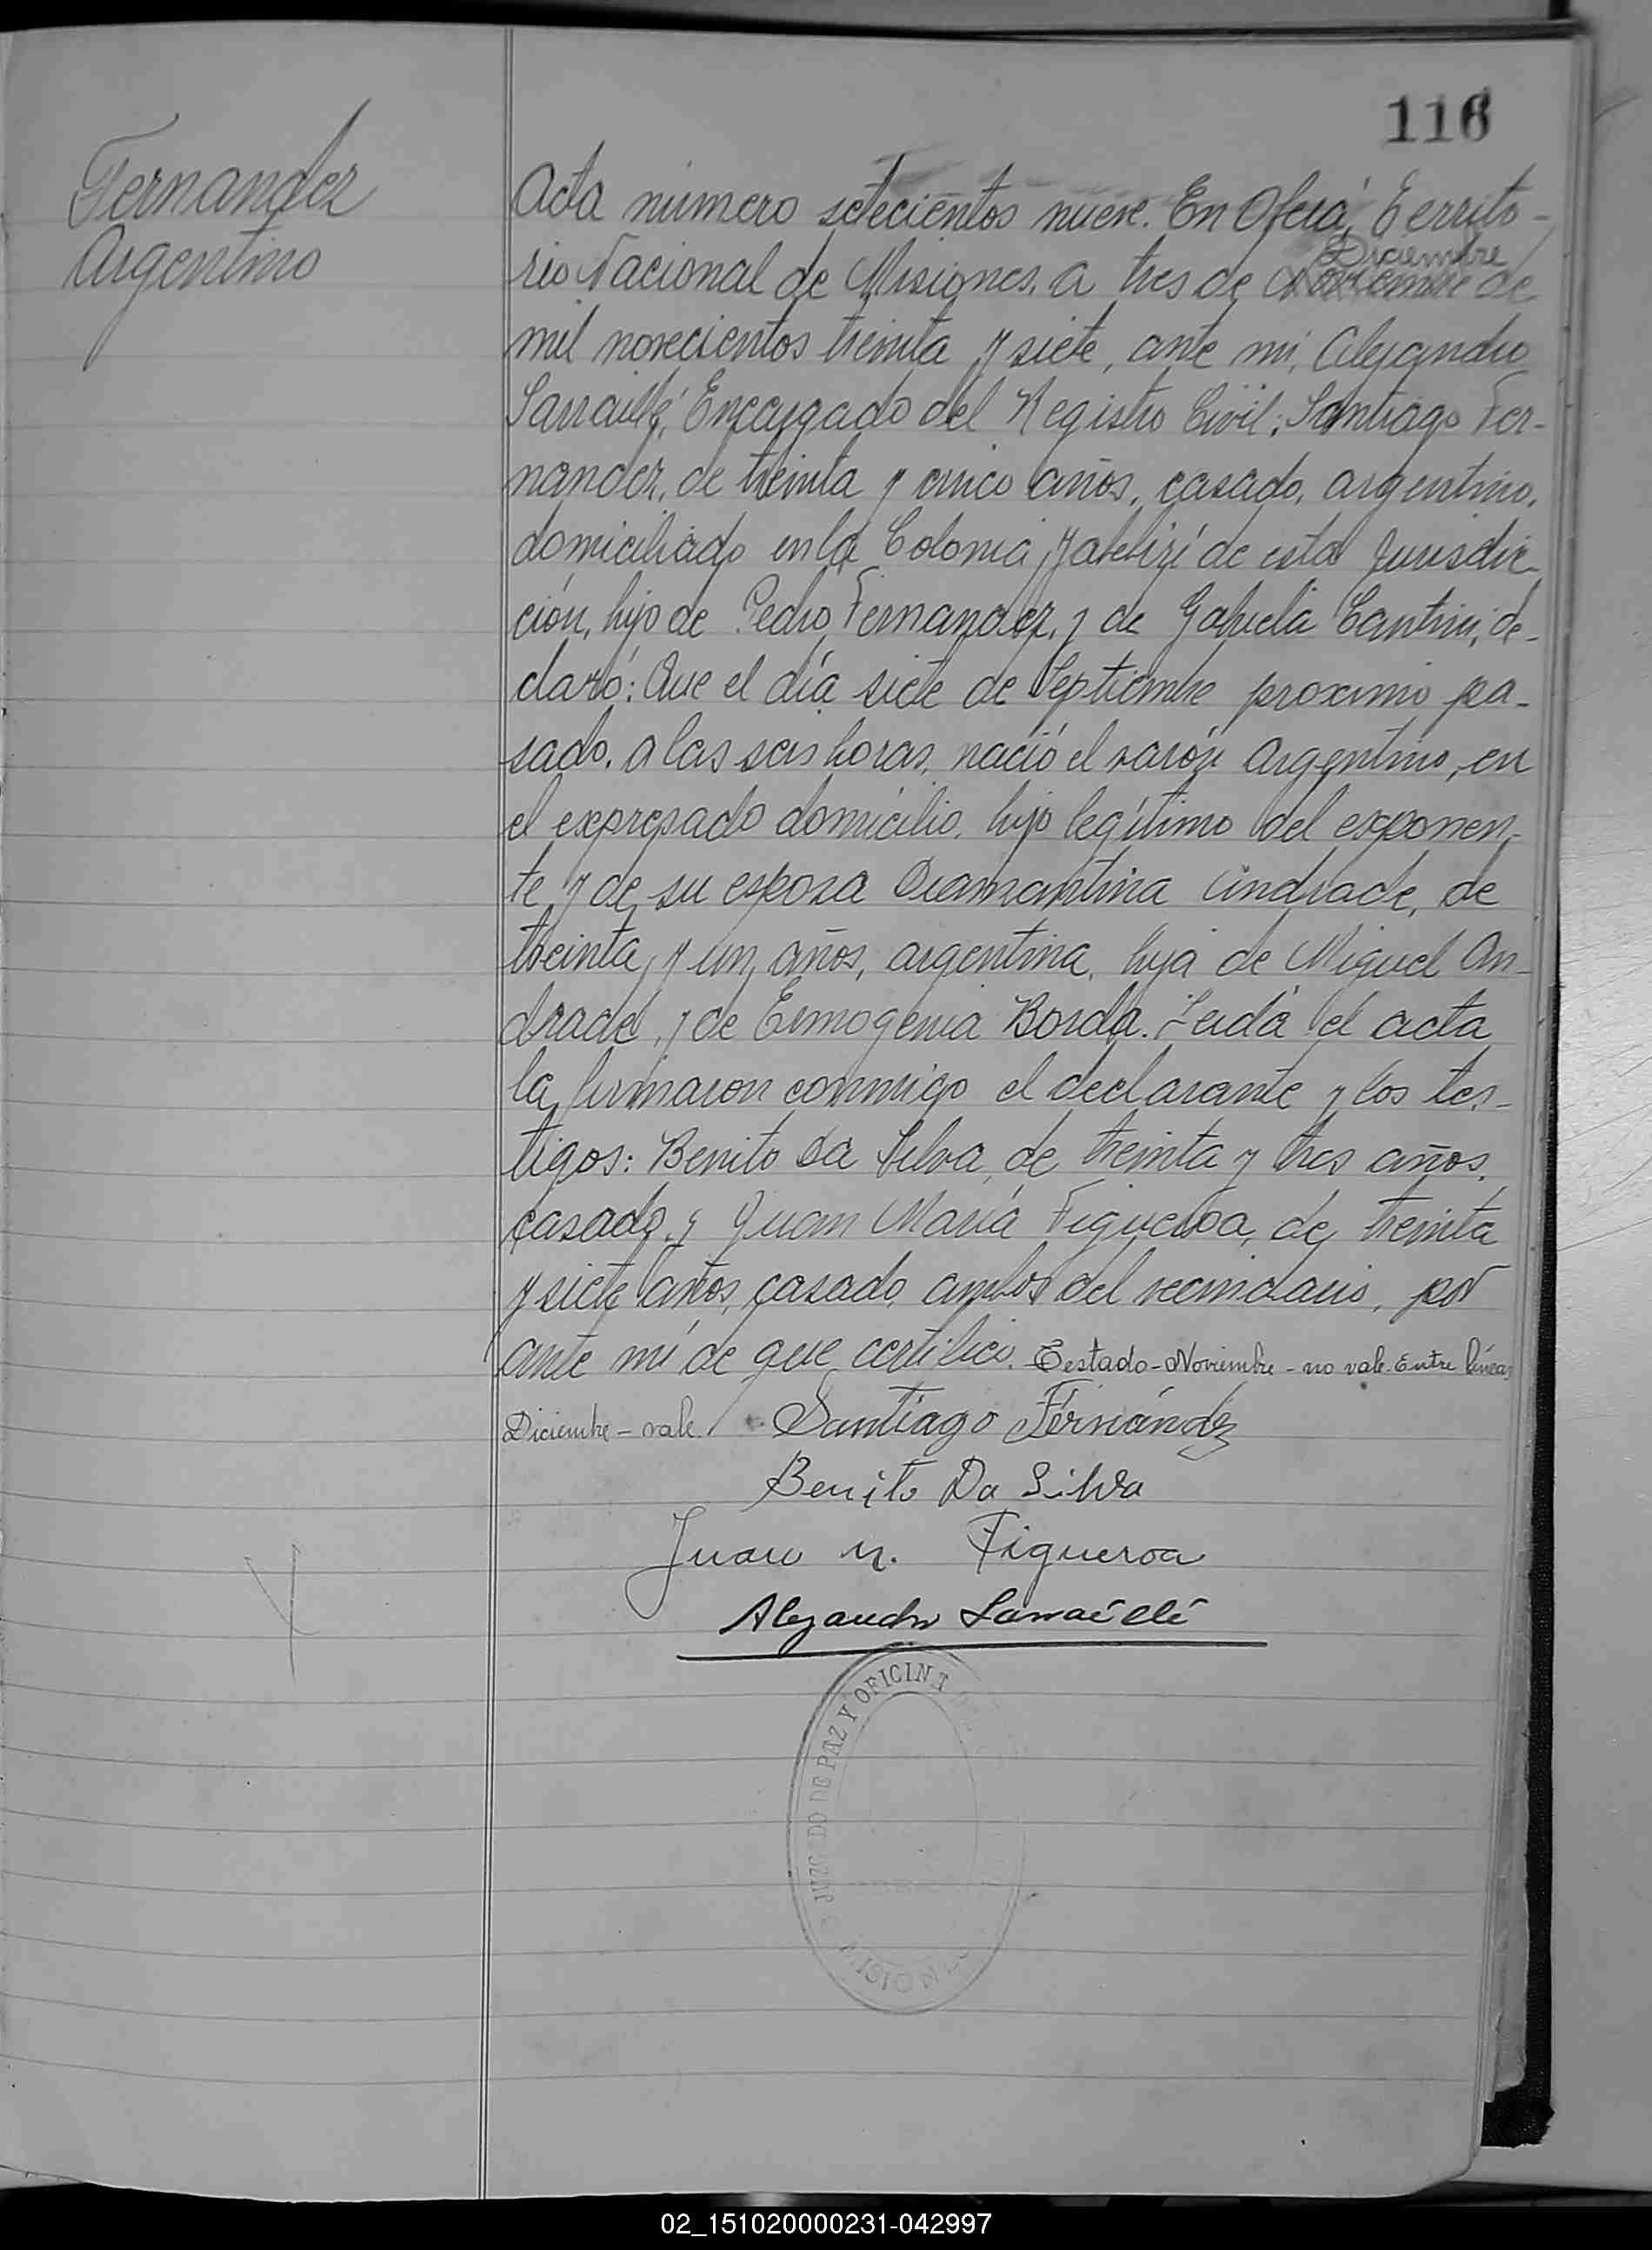 116
Fernandez
Argentino
Acta número setecientos nueve. En Oberá, Territo-
rio Nacional de Misiones, a tres de Noviembre de
Diciembre
mil novecientos treinta y siete, ante mi, Alejandro
Sarraillé, Encargado del Registro Civil; Santiago Fer-
nandez, de treinta y cinco años, casado, argentino,
domiciliado en la Colonia Yabebirí de esta Jurisdic
ción, hijo de Pedro Fernandez, y de Gabriela Cantini, de-
claró: Que el día siete de Septiembre proximo pa-
sado, a las seis horas, nació el varón Argentino, en
el expresado domicilio, hijo legítimo del exponen-
te y de su esposa Diamantina Andrade, de
treinta y un años, argentina, hija de Miguel An-
drade, y de Ermogenia Borda. Leida el acta
la firmaron conmigo el declarante y los tes-
tigos: Benito Da Silva, de treinta y tres años,
casado, y Juan María Figueroa, de treinta
y siete años, casado, ambos del vecindario, por
ante mí de que certifico. Testado-Noviembre-no vale. Entre líneas
Diciembre-vale.
Santiago Fernández
Benito Da Silva
Juan M. Figueroa
Alejandro Sarraillé
JUZGADO DE PAZ Y OFICINA
MISIONES
02_151020000231-042997